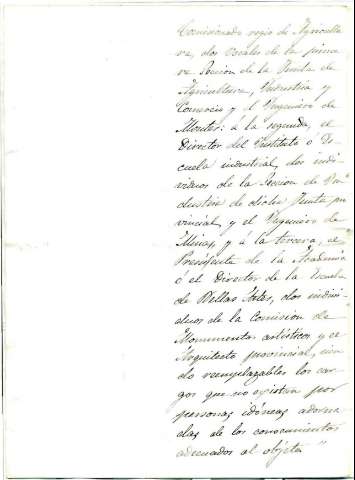 Comisionado regio de Agricultu
ra, dos vocales de la prime
ra Seccion de la Junta de
Agricultura, Industria y
Comercio y el Ingeniero de
Montes: á la segunda, el
Director del Instituto ó Es
cuela industrial, dos indi
viduos de la Seccion de In
dustria de dicha Junta pro
vincial, y el Ingeniero de
Minas, y á la tercera, el
Presidente de la Academia
ó el Director de la Escuela
de Bellas Artes, dos indivi
duos de la Comision de
Monumentos artísticos y el
Arquitecto provincial, sien
do reemplazables los car
gos que no existan por
personas idóneas adorna
das de los conocimientos
adecuados al objeto"